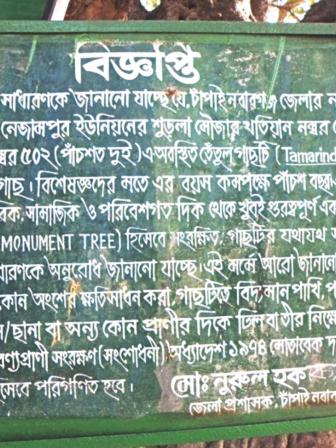 বিজ্ঞপ্তি
সাধারণকে জানানো যাচ্ছে যে, চাঁপাই নবাবগঞ্জ জেলার
নেজামপুর ইউনিয়নের শুড়লা মৌজার খতিয়ান নম্বর
৫০২ (পাঁচশত দুই) এ অবস্থিত তেঁতুল গাছটি (Tamarind
গাছ। বিশেষজ্ঞদের মতে এর বয়স কমপক্ষে পাঁচশ
সামাজিক ও পরিবেশগত দিক থেকে খুবই গুরুত্বপূর্ণ
MONUMENT TREE) হিসেবে সংরক্ষিত, গাছটির যথাযথ
অনুরোধ জানানো যাচ্ছে। এই মর্মে আরো জানানো
কোন অংশের ক্ষতিসাধন করা, গাছটিতে বিদ্যমান পাখি
/ছানা বা অন্য কোন প্রাণীর দিকে ঢিল বা তীর
সংরক্ষণ (সংশোধনী) অধ্যাদেশ ১৯৭৪ মোতাবেক
পরিগণিত হবে।
মোঃ নুরুল হক
জেলা প্রশাসক, চাঁপাই